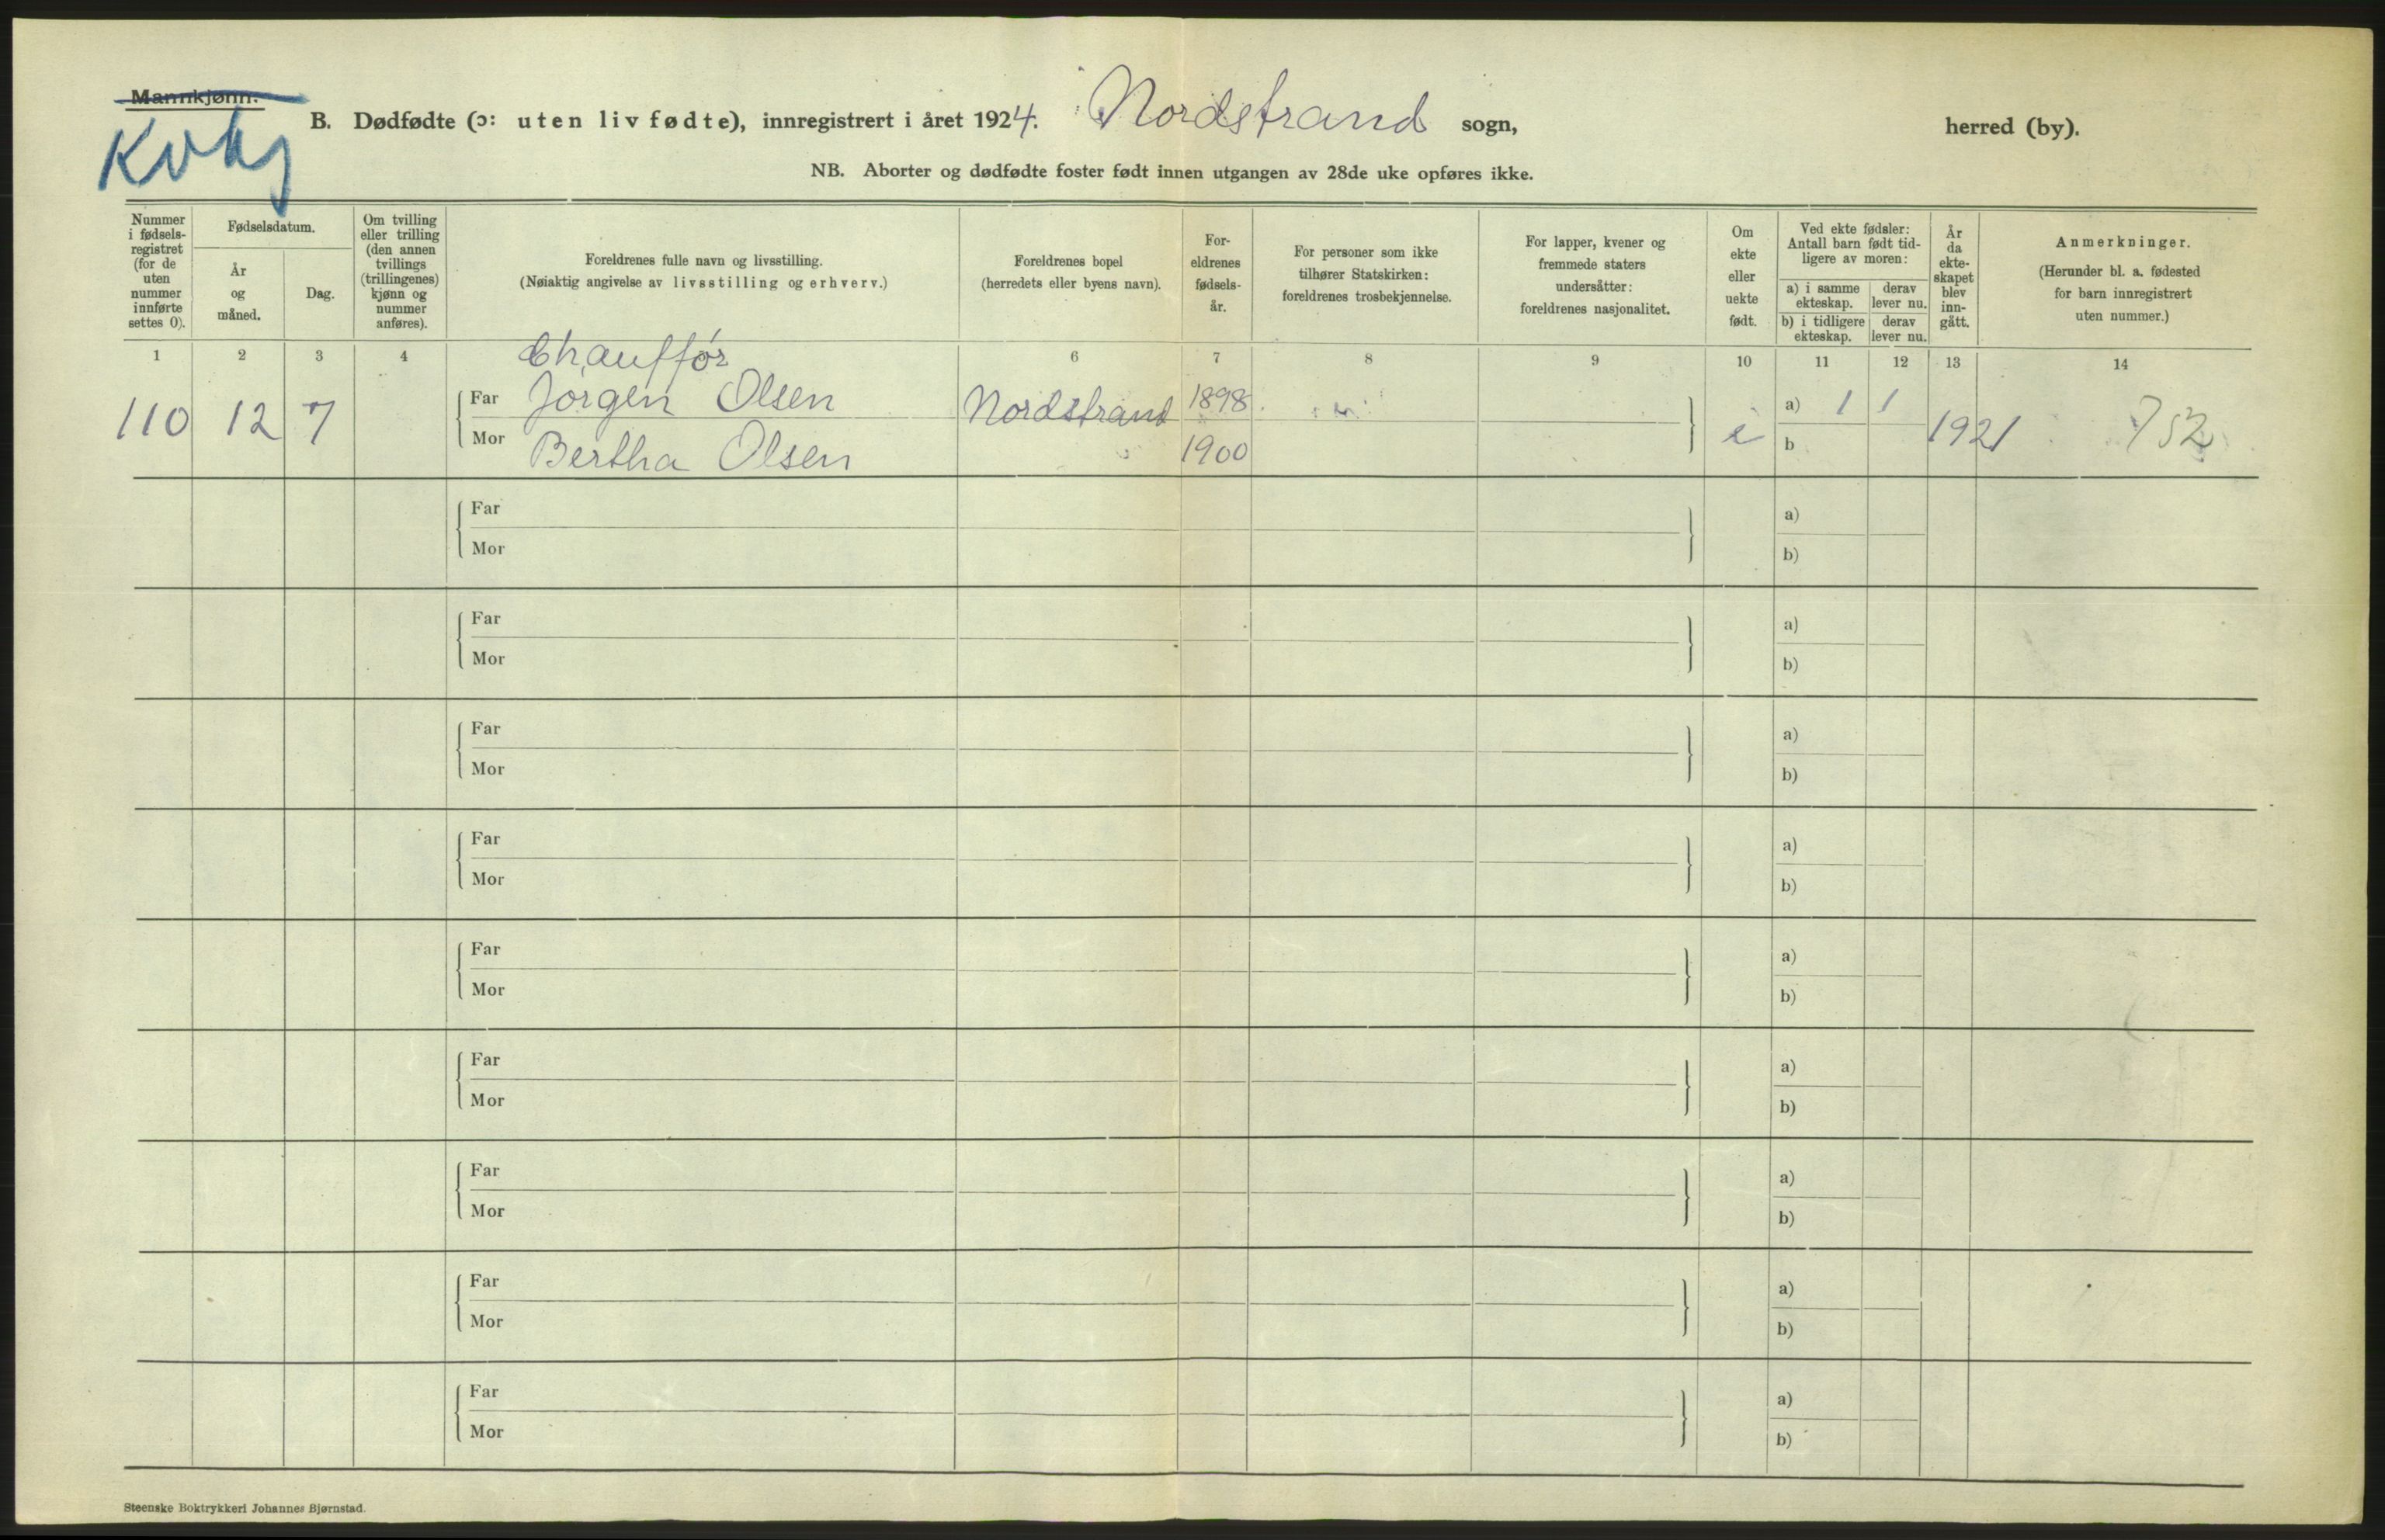 Mannkjønn.
Kvkj
B. Dødfødte (ɔ: uten liv fødte), innregistrert i året 1924. Nordstrand sogn, herred (by).
NB. Aborter og dødfødte foster født innen utgangen av 28de uke opføres ikke.
Nummer i fødselsregistret (for de uten nummer innførte settes 0).
Fødselsdatum.
År og måned.
Dag.
Om tvilling eller trilling (den annen tvillings (trillingenes) kjønn og nummer anføres).
Foreldrenes fulle navn og livsstilling.
(Nøiaktig angivelse av livsstilling og erhverv.)
Foreldrenes bopel
(herredets eller byens navn).
For-
eldrenes
fødsels-
år.
For personer som ikke
tilhører Statskirken:
foreldrenes trosbekjennelse.
For lapper, kvener og
fremmede staters
undersåtter:
foreldrenes nasjonalitet.
Om
ekte
eller
uekte
født.
Ved ekte fødsler:
Antall barn født tid-
ligere av moren:
a) i samme ekteskap.
derav lever nu.
b) i tidligere ekteskap.
derav lever nu.
År
da
ekte-
skapet
blev
inn-
gått.
Anmerkninger.
(Herunder bl. a. fødested
for barn innregistrert
uten nummer.)
1 2 3 4 6 7 8 9 10 11 12 13 14
Chauffør
110 12 7 Far Jørgen Olsen Nordstrand 1898 a) 1 1 1921 752
Mor Bertha Olsen 1900 b
Far a)
Mor b)
Far a)
Mor b)
Far a)
Mor b)
Far a)
Mor b)
Far a)
Mor b)
Far a)
Mor b)
Far a)
Mor b)
Far a)
Mor b)
Far a)
Mor b)
Steenske Boktrykkeri Johannes Bjørnstad.